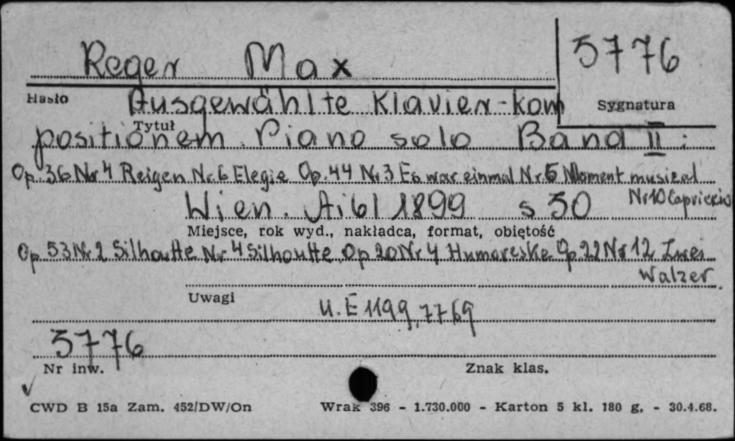 Reger Max
5776
Hasło
Ausgewählte Klavier-kom
Sygnatura
Tytuł
positionem. Piano solo Band II:
Op. 36 Nr 4 Reigen Nr. 6 Elegie Op. 44 Nr 3 Es war einmal Nr. 5 Moment musical
Nr 10 Capriccio
Wien. Aibl 1899 s 30
Miejsce, rok wyd., nakładca, format, objętość
Op. 53 Nr. 2 Silhoutte Nr 4 Silhoutte Op 20 Nr 4 Humoreske Op. 22 Nr 12 Zwei
Walzer.
Uwagi
U. E 1199, 7769
5776
Nr inw.
Znak klas.
CWD B 15a Zam. 452/DW/On
Wrak 396 - 1.730.000 - Karton 5 kl. 180 g, - 30.4.68.